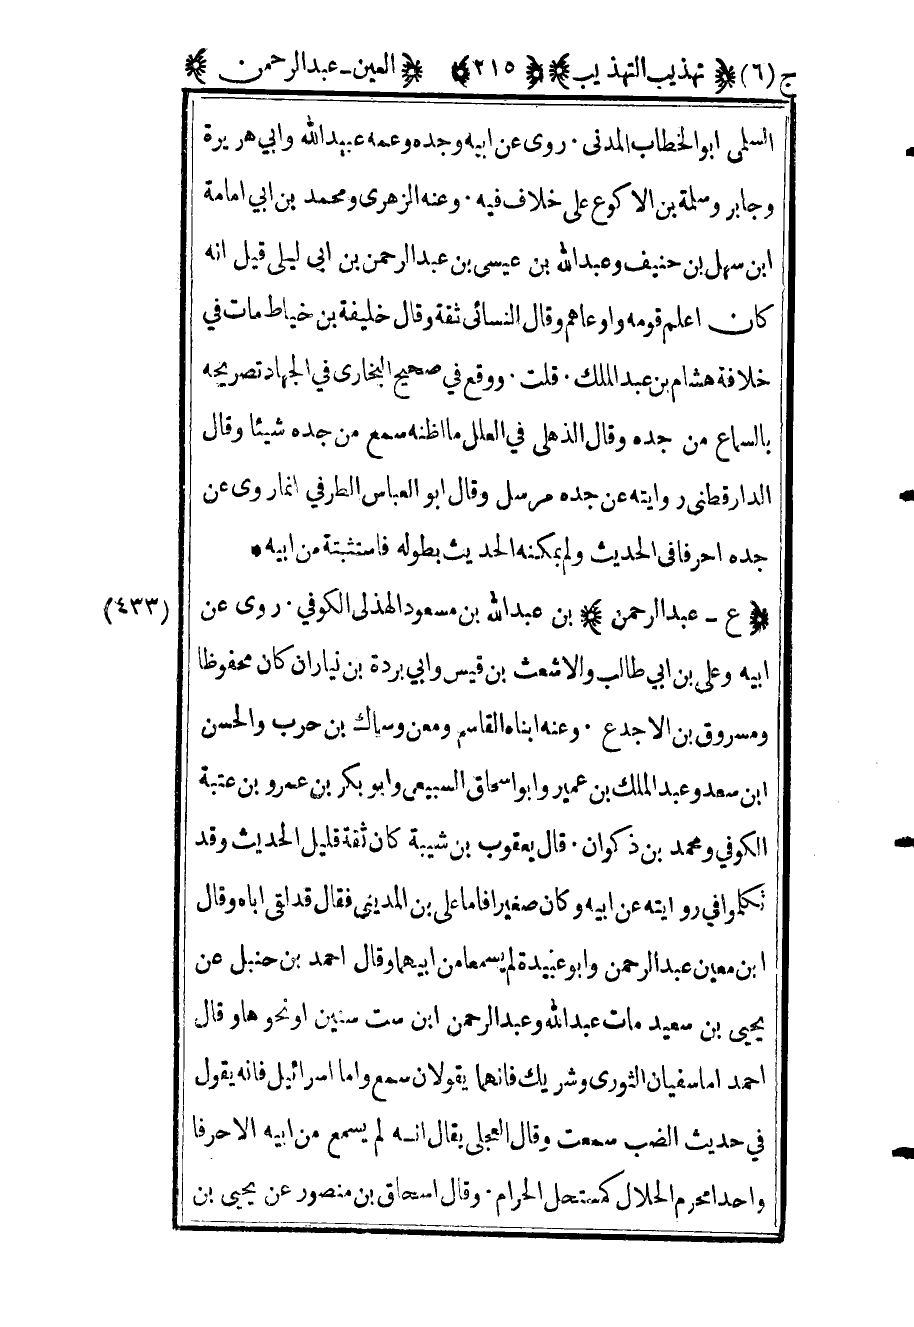 ج (٦) ﴿ تهذيب التهذيب ﴾ ﴿ ٢١٥ ﴾ ﴿ العين - عبدالرحمن ﴾
السلمى ابوالخطاب المدنى · روى عن ابيه وجده وعمه عبيدالله وابي هريرة
وجابر وسلمة بن الاكوع على خلاف فيه · وعنه الزهرى ومحمد بن ابي امامة
ابن سهل بن حنيف وعبدالله بن عيسى بن عبدالرحمن بن ابي ليلى قيل انه
كان اعلم قومه واوعاهم وقال النسائى ثقة وقال خليفة بن خياط مات في
خلافة هشام بن عبدالملك · قلت · ووقع في صحيح البخارى في الجهاد تصريحه
بالسماع من جده وقال الذهلى في العلل مااظنه سمع من جده شيئا وقال
الدارقطنى روايته عن جده مرسل وقال ابو العباس الطرفي انما روى عن
جده احرفافى الحديث ولم يمكنه الحديث بطوله فاستثبتة من ابيه *
﴿ ع - عبدالرحمن ﴾ بن عبدالله بن مسعود الهذلى الكوفي · روى عن (٤٣٣)
ابيه وعلى بن ابي طالب والاشعث بن قيس وابي بردة بن نياران كان محفوظا
ومسروق بن الاجدع · وعنه ابناه القاسم ومعن وسماك بن حرب والحسن
ابن سعد وعبدالملك بن عمير وابواسحاق السبيعى وابو بكر بن عمرو بن عتبة
الكوفي ومحمد بن ذكوان · قال يعقوب بن شيبة كان ثقة قليل الحديث وقد
تكلموافي روايته عن ابيه وكان صغيرا فاما على بن المدينى فقال قدلقى اباه وقال
ابن معين عبدالرحمن وابو عبيدة لم يسمعامن ابيهما وقال احمد بن حنبل عن
يحيى بن سعيد مات عبدالله وعبدالرحمن ابن ست سنين اونحوها وقال
احمد اماسفيان الثورى وشريك فانهما يقولان سمع واما اسرائيل فانه يقول
في حديث الضب سمعت وقال العجلى يقال انه لم يسمع من ابيه الاحرفا
واحدا محرم الحلال كمستحل الحرام · وقال اسحاق بن منصور عن يحيى بن